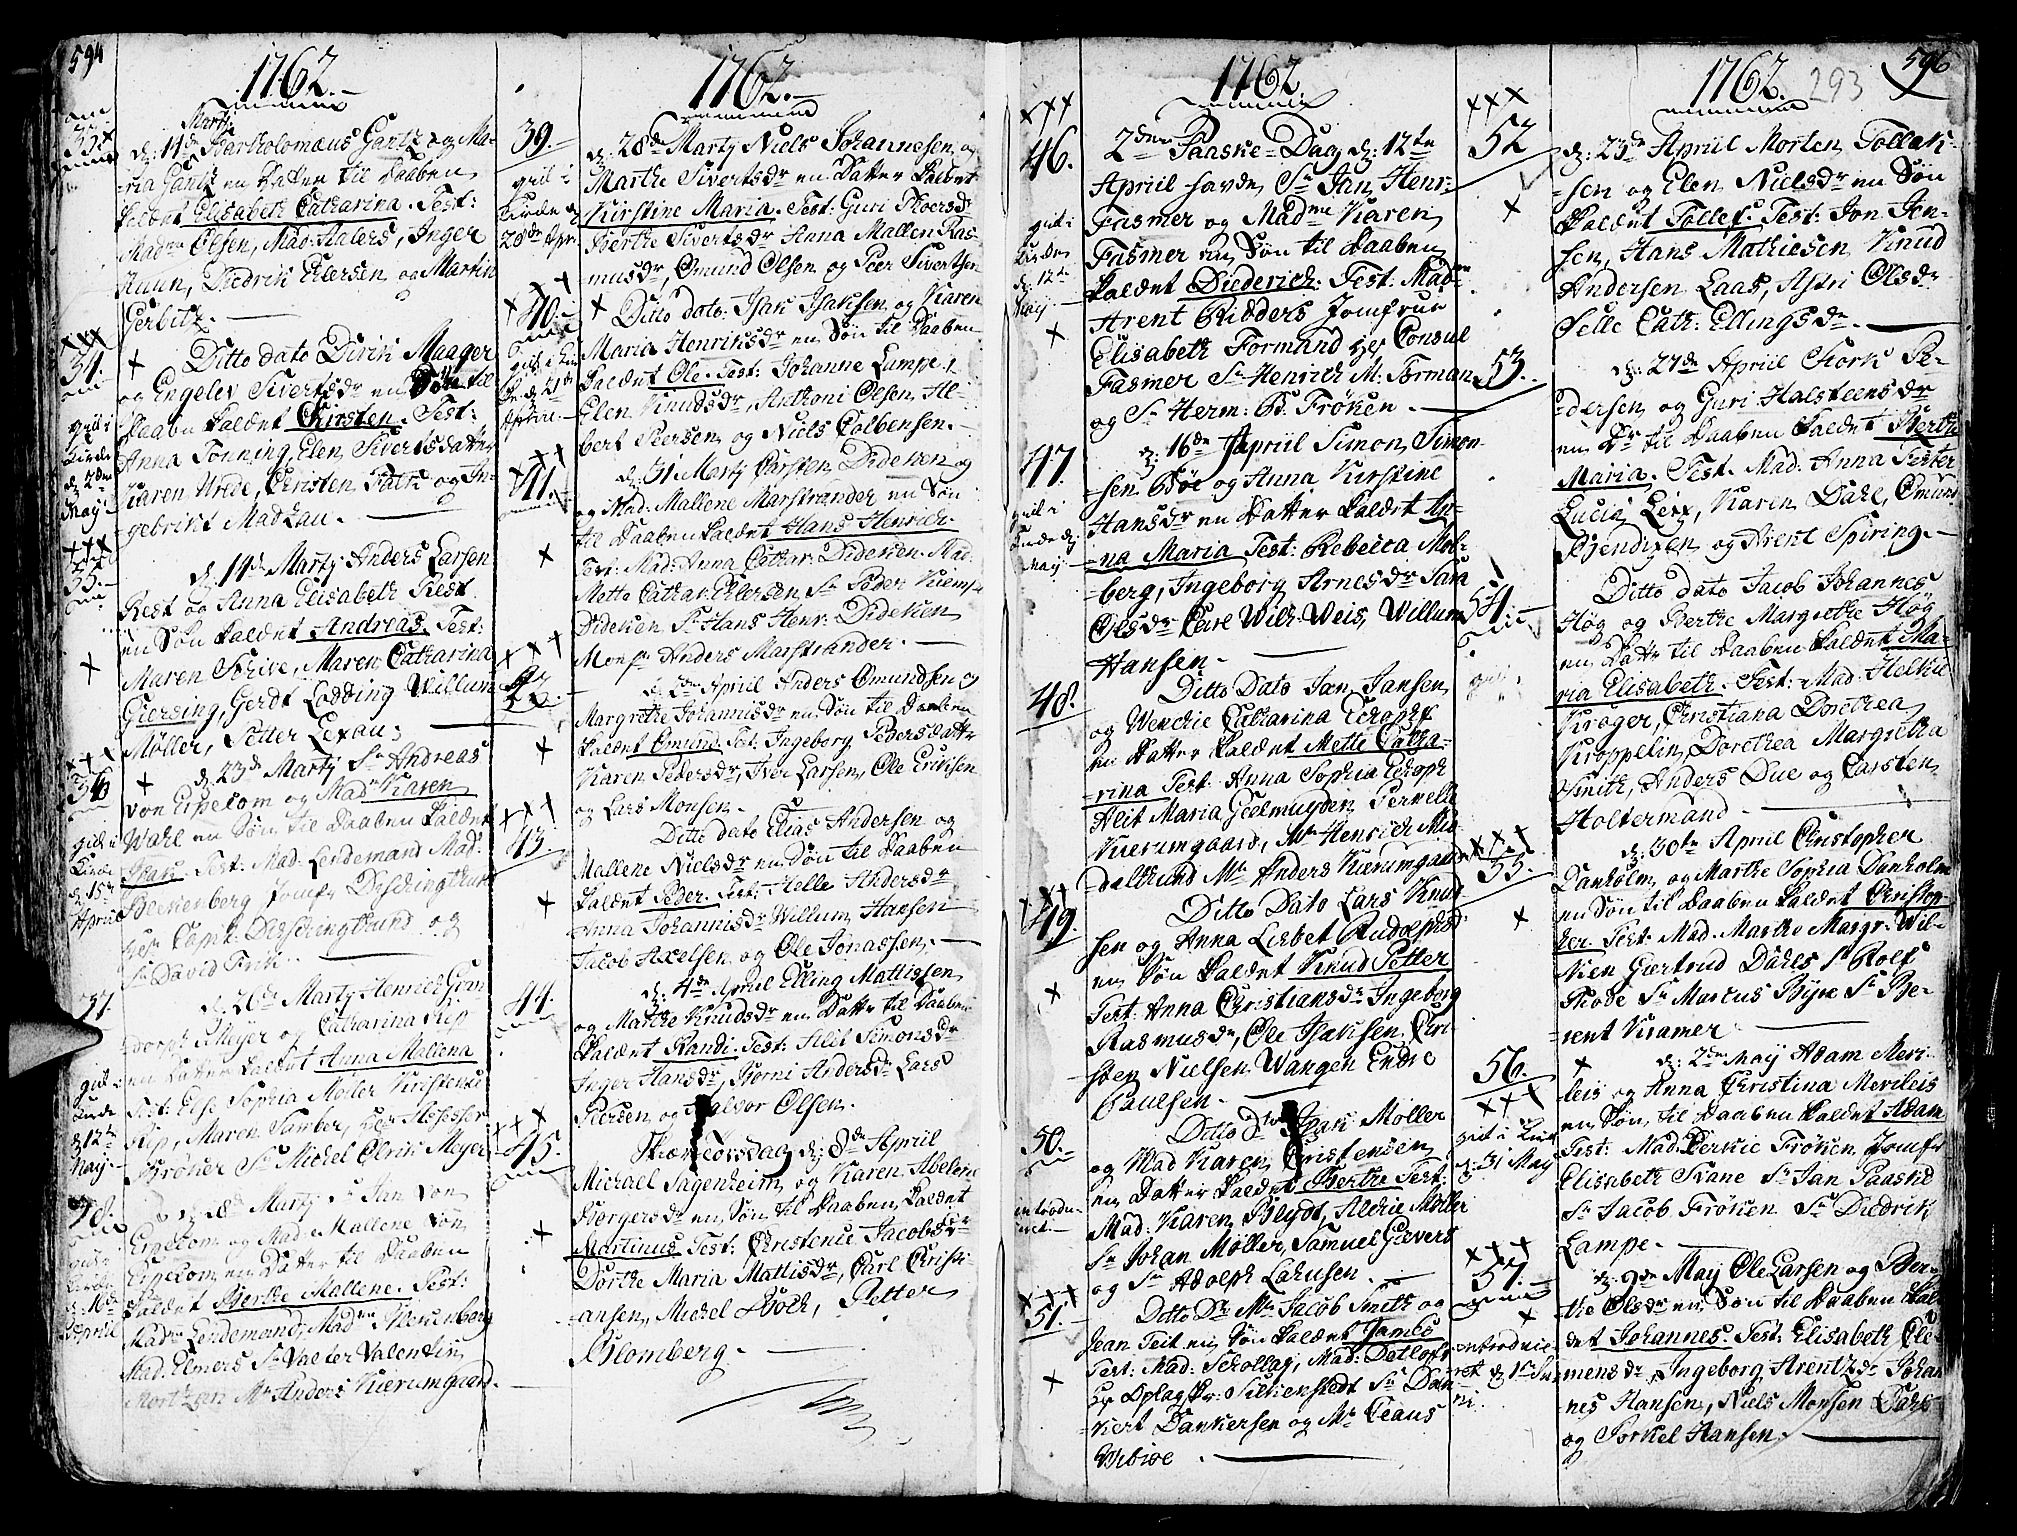 594
1762.
Marty
33
d: 11de Bartholomæus Gantz og Ma-
ria Gantz en Datter til Daaben
kaldet Elisabeth Catharina. Test:
Mad Olsen, Mad: Aalers, Inger
Ruun, Diedrik Petersen og Martin
Gerbitz.
34.
Ditto dato Dirik Maager
og Engelev Sivertsdr en Dr til
Daaben kaldet Kirsten. Test:
Anna Tønning, Elen Sivertsdatter
Karen Wrede, Christen Falk og In-
gebrikt Madzau.
gik i
Kirke
d: 2den
May
35.
d: 14de Marty Anders Larsen
Rest og Anna Elisabeth Rest
en Søn kaldet Andreas. Test:
Maren Schive, Maren Catharina
Giersing, Gerdt Lodding Willum
Møller, Petter Lexau.
36
d: 23de Marty Sr Andreas
von Erpecom og Mad Karen
Wahl en Søn til Daaben kaldet
Test: Mad: Lindemand Mad:
Jomfr
Hr Capit:
Sr David Frik.
gik i
Kirke
d: 15de
Aprill
37.
d: 26de Marty Henrich Gom
dorph Meyer og Catharina Rip
en Datter kaldet Anna Mallena
Test: Else Sophia Møller Kirstence
Rip, Maren Tamber, Hr Assessor
Krøner Sr Michel Ulrik Meyer
gik i
Kirke
d: 12te
May
38.
d: 28de Marty Sr Jan von
Erpecom og Mad Mallene von
Erpecom en Datter til Daaben
kaldet Berthe Mallene. Test:
Madm Lindemand, Madm
Mad: Elmers Sr Valter Valentin
Mortzen Mr Anders Kierumgaard.
gik i
Kirke
d: 16de
Aprill
1762.
39.
d: 28de Marty Niels Johannesen og
Marthe Sivertsdr en Datter kaldet
Kirstine Maria. Test: Guri Thoersdr
Berthe Sivertsdr Anna Mallen Ras-
musdr, Omund Olsen og Peer Sivertsen
gik i
Kirke d:
20de Apr.
40.
Ditto dato: Isak Isaksen og Karen
Maria Henriksdr en Søn til Daaben
kaldet Ole. Test: Johanne Lampe,
Elen Knudsdr, Anthoni Olsen, Al-
bert Peersen og Niels Colbensen.
gik i Kir
ke d: 21de
Aprill
41.
d: 31 Marty Carsten Dideksen og
og Mad: Mallene Marstrander en Søn
til Daaben kaldet Hans Henrich.
Test: Mad: Anna Cathar: Dideksen Mad:
Mette Cathar: Petersen Sr Peder
Didecksen Sr Hans Henr: Didecksen
Monsr Anders Marstrander.
42.
d: 2den Aprill Anders Omundsen og
Margrethe Johannisdr en Søn til Daaben
kaldet Omund Test: Ingeborg Pedersdatter
Karen Pedersdr, Iver Larsen, Ole Eriksen
og Lars Monsen.
43.
Ditto dato Elias Andersen og
Mallene Nielsdr en Søn til Daaben
kaldet Peder. Test: Helle Andersdr
Anna Johannisdr Willum Hansen
Jacob Axelsen og Ole Jonassen.
44.
d: 4de Aprill Elling Mattissen
og Marthe Knudsdr en Datter til Daaben
kaldet Randi. Test: Alit Simonsdr
Inger Hansdr, Biørni Andersdr Lars
Peersen og Halvor Olsen.
45.
Skiertorsdag d: 8de April
Michael Sagenheim og Karen Abelene
Børgersdr en Søn til Daaben kaldet
Martinus Test: Christence Jacobsdr
Dorthe Maria Mattisdr, Carl Christi-
ansen, Michel Koch, Petter
Blomberg.
1762.
46.
2den Paaske-Dag d: 12te
Aprill havde Sr Jan Henr:
Fasmer og Madme Karen
Fasmer en Søn til Daaben
kaldet Diederich: Test: Madm
Arent Ridders Jomfrue
Elisabeth Formand Hr Consul
Fasmer Sr Henrich M: Forman
og Sr Herm: D. Frøken.
gik i
Kirken
d: 12te
May
47.
d: 16de Aprill Simon Simon-
sen Bøe og Anna Kirstine
Hansdr en Datter kaldet An-
na Maria Test: Rebecca Mol-
berg, Ingeborg Arnesdr Sara
Olsdr Carl Wilh: Weis, Willum
Hansen.
gik i
Kirke d:
May
48.
Ditto Dato Jan Jansen
og Wenche Catharina Schoph
en Datter kaldet Mette Catha-
rina Test: Anna Sophia Schoph
Alit Maria Geelmuyden Pernelle
Kierumgaard, Mr Henrich Mid
Mr Anders Kierumgaard
49.
Ditto Dato Lars Knud
sen og Anna Lisbet Rudolphsdr
en Søn kaldet Knud Petter
Test: Anna Christiansdr Ingeborg
Rasmusdr, Ole Isaksen, Chri-
stoen Nielsen Wangen Endre
Paulsen.
50.
Ditto Dto Isak Møller
og Mad Karen Christensen
en Datter kaldet Berthe Test:
Mad: Karen Blydt, Alchie Møller
Sr Johan Møller, Samuel Gievers
og Sr Adolph Lahusen.
introdu-
ceret
51.
Ditto Do Mr Jacob Smith og
Jean Teit en Søn kaldet James
Test: Mad: Schollag, Mad: Detlofs
Hr Oplagsfr: Sr Dan-
kert Dankersen og Mr Claus
Wibroe
1762.
596
293
52
d: 23de Aprill Morten Tollak-
sen og Elen Nielsdr en Søn
kaldet Tolles. Test: Jon Jen-
sen, Hans Mathiesen Knud
Andersen Laas, Astri Olsdr
Selle Cath: Ellingsdr.
53.
d: 27de Aprill Stork Pe-
dersen og Guri Halsteensdr
en Dr til Daaben kaldet Berthe
Maria. Test. Mad: Anna Tester
Lucia Lexx, Karen Dahl, Omund
Bendixen og Arent Spiring.
54.
Ditto dato Jacob Johannes
Høg og Berthe Margrethe Høg
en Datter til Daaben kaldet Ma-
ria Elisabeth. Test: Mad:
Krøger, Christiana Dorothea
Kroppelin, Dorothea Margretha
Smith, Anders Due og Carsten
Holtermand.
55.
d: 30te April Christopher
Danholm og Marthe Sophia Danholm
en Søn til Daaben kaldet Christop-
her. Test: Mad Marthe Margr: Wil-
kien Giertrud Dahls Sr Rolf
Thode Sr Marcus Byse Sr Be-
rent Kramer
56.
d: 2den May Adam Meri-
leis og Anna Christina Merileis
en Søn til Daaben kaldet Adam
Test: Mad: Frøken Jomfr
Elisabeth Svane Sr Jan Paaske
Sr Jacob Frøken Sr Diedrik
Lampe.
gik i Kirk
d: 31 May
57.
d: 9de May Ole Larsen og Ber-
the Olsdr en Søn til Daaben kal
det Johannes. Test: Elisabeth Cle-
mensdr, Ingeborg Arentzdr Johan
nes Hansen, Niels Monsen Dahl
og Torkel Hansen.
introduce
ret d: 1ste Ju
ni